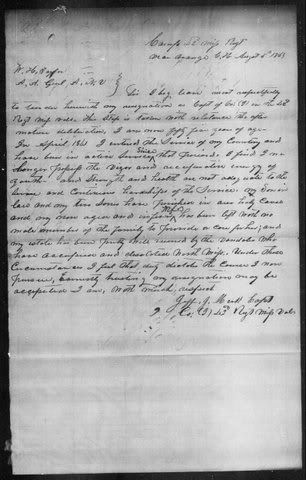 Camp 42 Miss Regt
Near Orange C. H. August 5th 1863
W. H. Taylor
A. A. Genl A. N. V.
Sir I beg leave most respectfully
to tender herewith my resignation as Capt of Co. in the 42
Regt Miss Vols. This Step is taken with reluctance tho after
mature deliberation, I am now fifty four years of age.
In April 1861 I entered the Service of my Country and
have been in active Service Since that period. I find I no
longer possess the Vigor and energy of
youth. Labor Strength and health are not adequate to the
and Continuous hardships of the Service. My Son in
law and my two Sons have perished in our holy Cause
and my now aged and infirm Wife has been left with no
male member of the family to provide or care for her; and
my estate has been pretty well ruined by the Vandals Who
have occupied and desolated North Miss. Under these
Circumstances I feel that duty dictates the Course I now
pursue, Earnestly trusting my resignation may be
accepted I am, With much respect
Capt
Co. 42d Regt Miss Vols